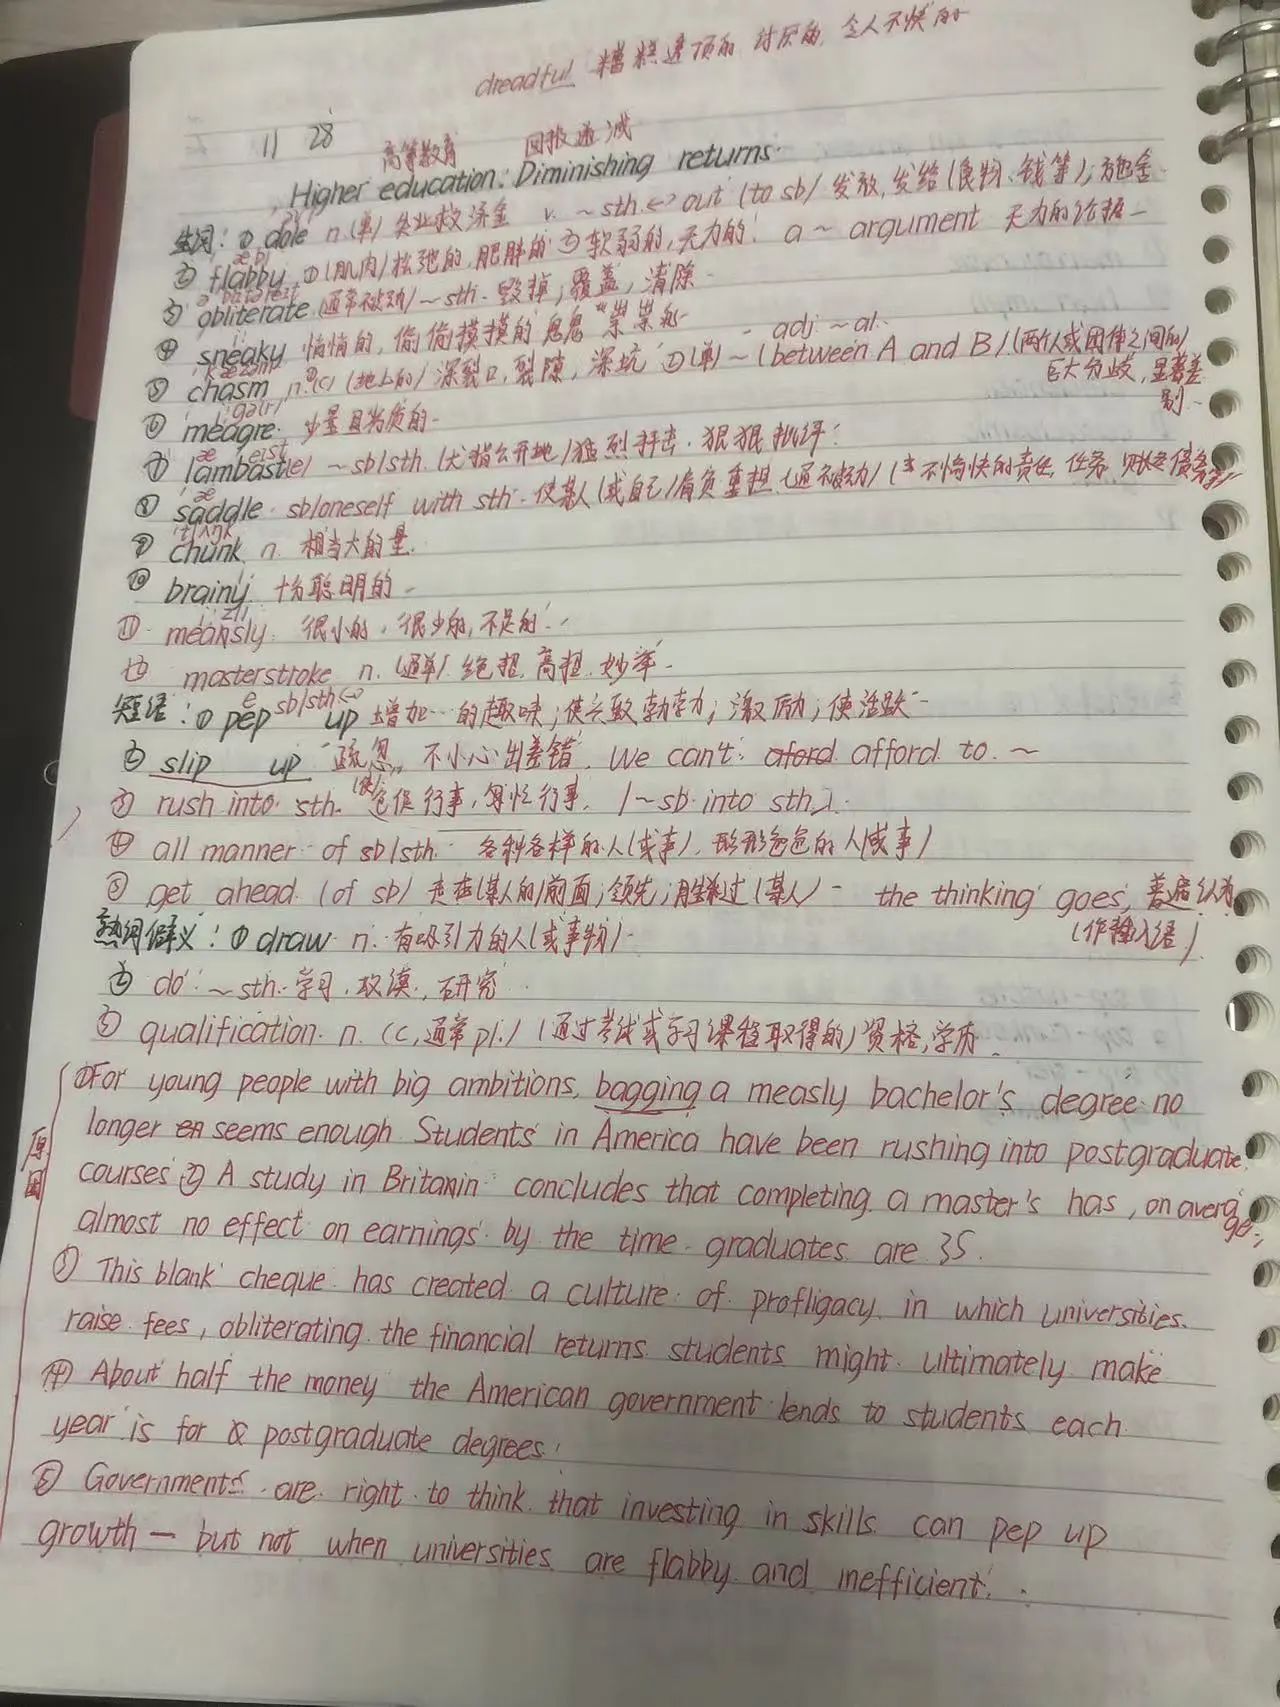 dreadful 糟糕透顶的, 讨厌的, 令人不快的
11 28 高等教育 回报递减
Higher education: Diminishing returns.
生词: ① dole n.(单) 失业救济金 v. ~sth.↔out (to sb) 发放,发给(食物、钱等); 施舍
② flabby ①(肌肉)松弛的,肥胖的 ②软弱的,无力的. a ~ argument 无力的论据
③ obliterate (通常被动) ~sth. 毁掉;覆盖,清除
④ sneaky 悄悄的,偷偷摸摸的 鬼鬼祟祟 adj ~al.
⑤ chasm n. ①(C)(地上的)深裂口,裂隙,深坑 ②(单)~(between A and B)(两个人或团体之间的)
巨大分歧,显著差
别
⑥ meagre 少量且劣质的
⑦ lambast(e) ~sb/sth. (尤指公开地)猛烈抨击,狠狠批评.
⑧ saddle sb/oneself with sth. 使某人(或自己)肩负重担 (通常被动) 不愉快的责任,任务,
⑨ chunk n. 相当大的量.
⑩ brainy 十分聪明的
⑪ meansly 很小的,很少的,不足的.
⑫ masterstroke n. (通单) 绝招,高招,妙举
短语: ① pep sb/sth↔ up 增加…的趣味;使兴致勃勃;激励;使活跃
② slip up 疏忽, 不小心出差错. We can't aford afford to ~
③ rush into sth. (使)仓促行事,匆忙行事. / ~sb into sth.
④ all manner of sb/sth. 各种各样的人(或事),形形色色的人(或事)
⑤ get ahead (of sb) 走在(某人的)前面;领先;胜过(某人) - the thinking goes, 普遍认为
(作插入语)
熟词僻义: ① draw n. 有吸引力的人(或事物)
② do: ~sth. 学习,攻读,研究
③ qualification n. (C,通常pl.) (通过考试或学习课程取得的)资格,学历
原因 ①For young people with big ambitions, bagging a measly bachelor's degree no
longer seems enough Students in America have been rushing into postgraduate
courses ② A study in Britain concludes that completing a master's has, on average,
almost no effect on earnings by the time graduates are 35.
③ This blank cheque has created a culture of profligacy in which universities
raise fees, obliterating the financial returns students might ultimately make
④ About half the money the American government lends to students each
year is for postgraduate degrees.
⑤ Governments are right to think that investing in skills can pep up
growth — but not when universities are flabby and inefficient.